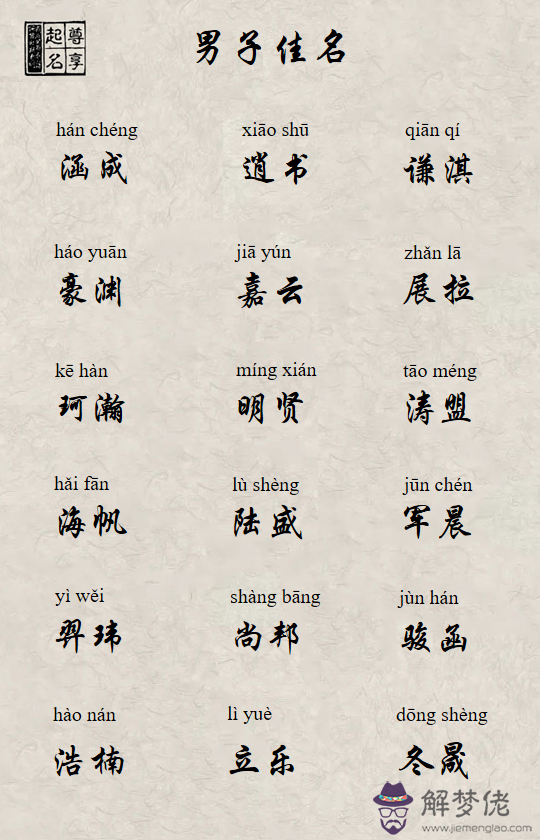 尊享
起名
男子佳名
hán chéng xiāo shū qiān qí
涵成 逍书 谦淇
háo yuān jiā yún zhǎn lā
豪渊 嘉云 展拉
kē hàn míng xián tāo méng
珂瀚 明贤 涛盟
hǎi fān lù shèng jūn chén
海帆 陆盛 军晨
yì wěi shàng bāng jùn hán
羿玮 尚邦 骏函
hào nán lì yuè dōng shèng
浩楠 立乐 冬晟
解梦佬
www.jiemenglao.com